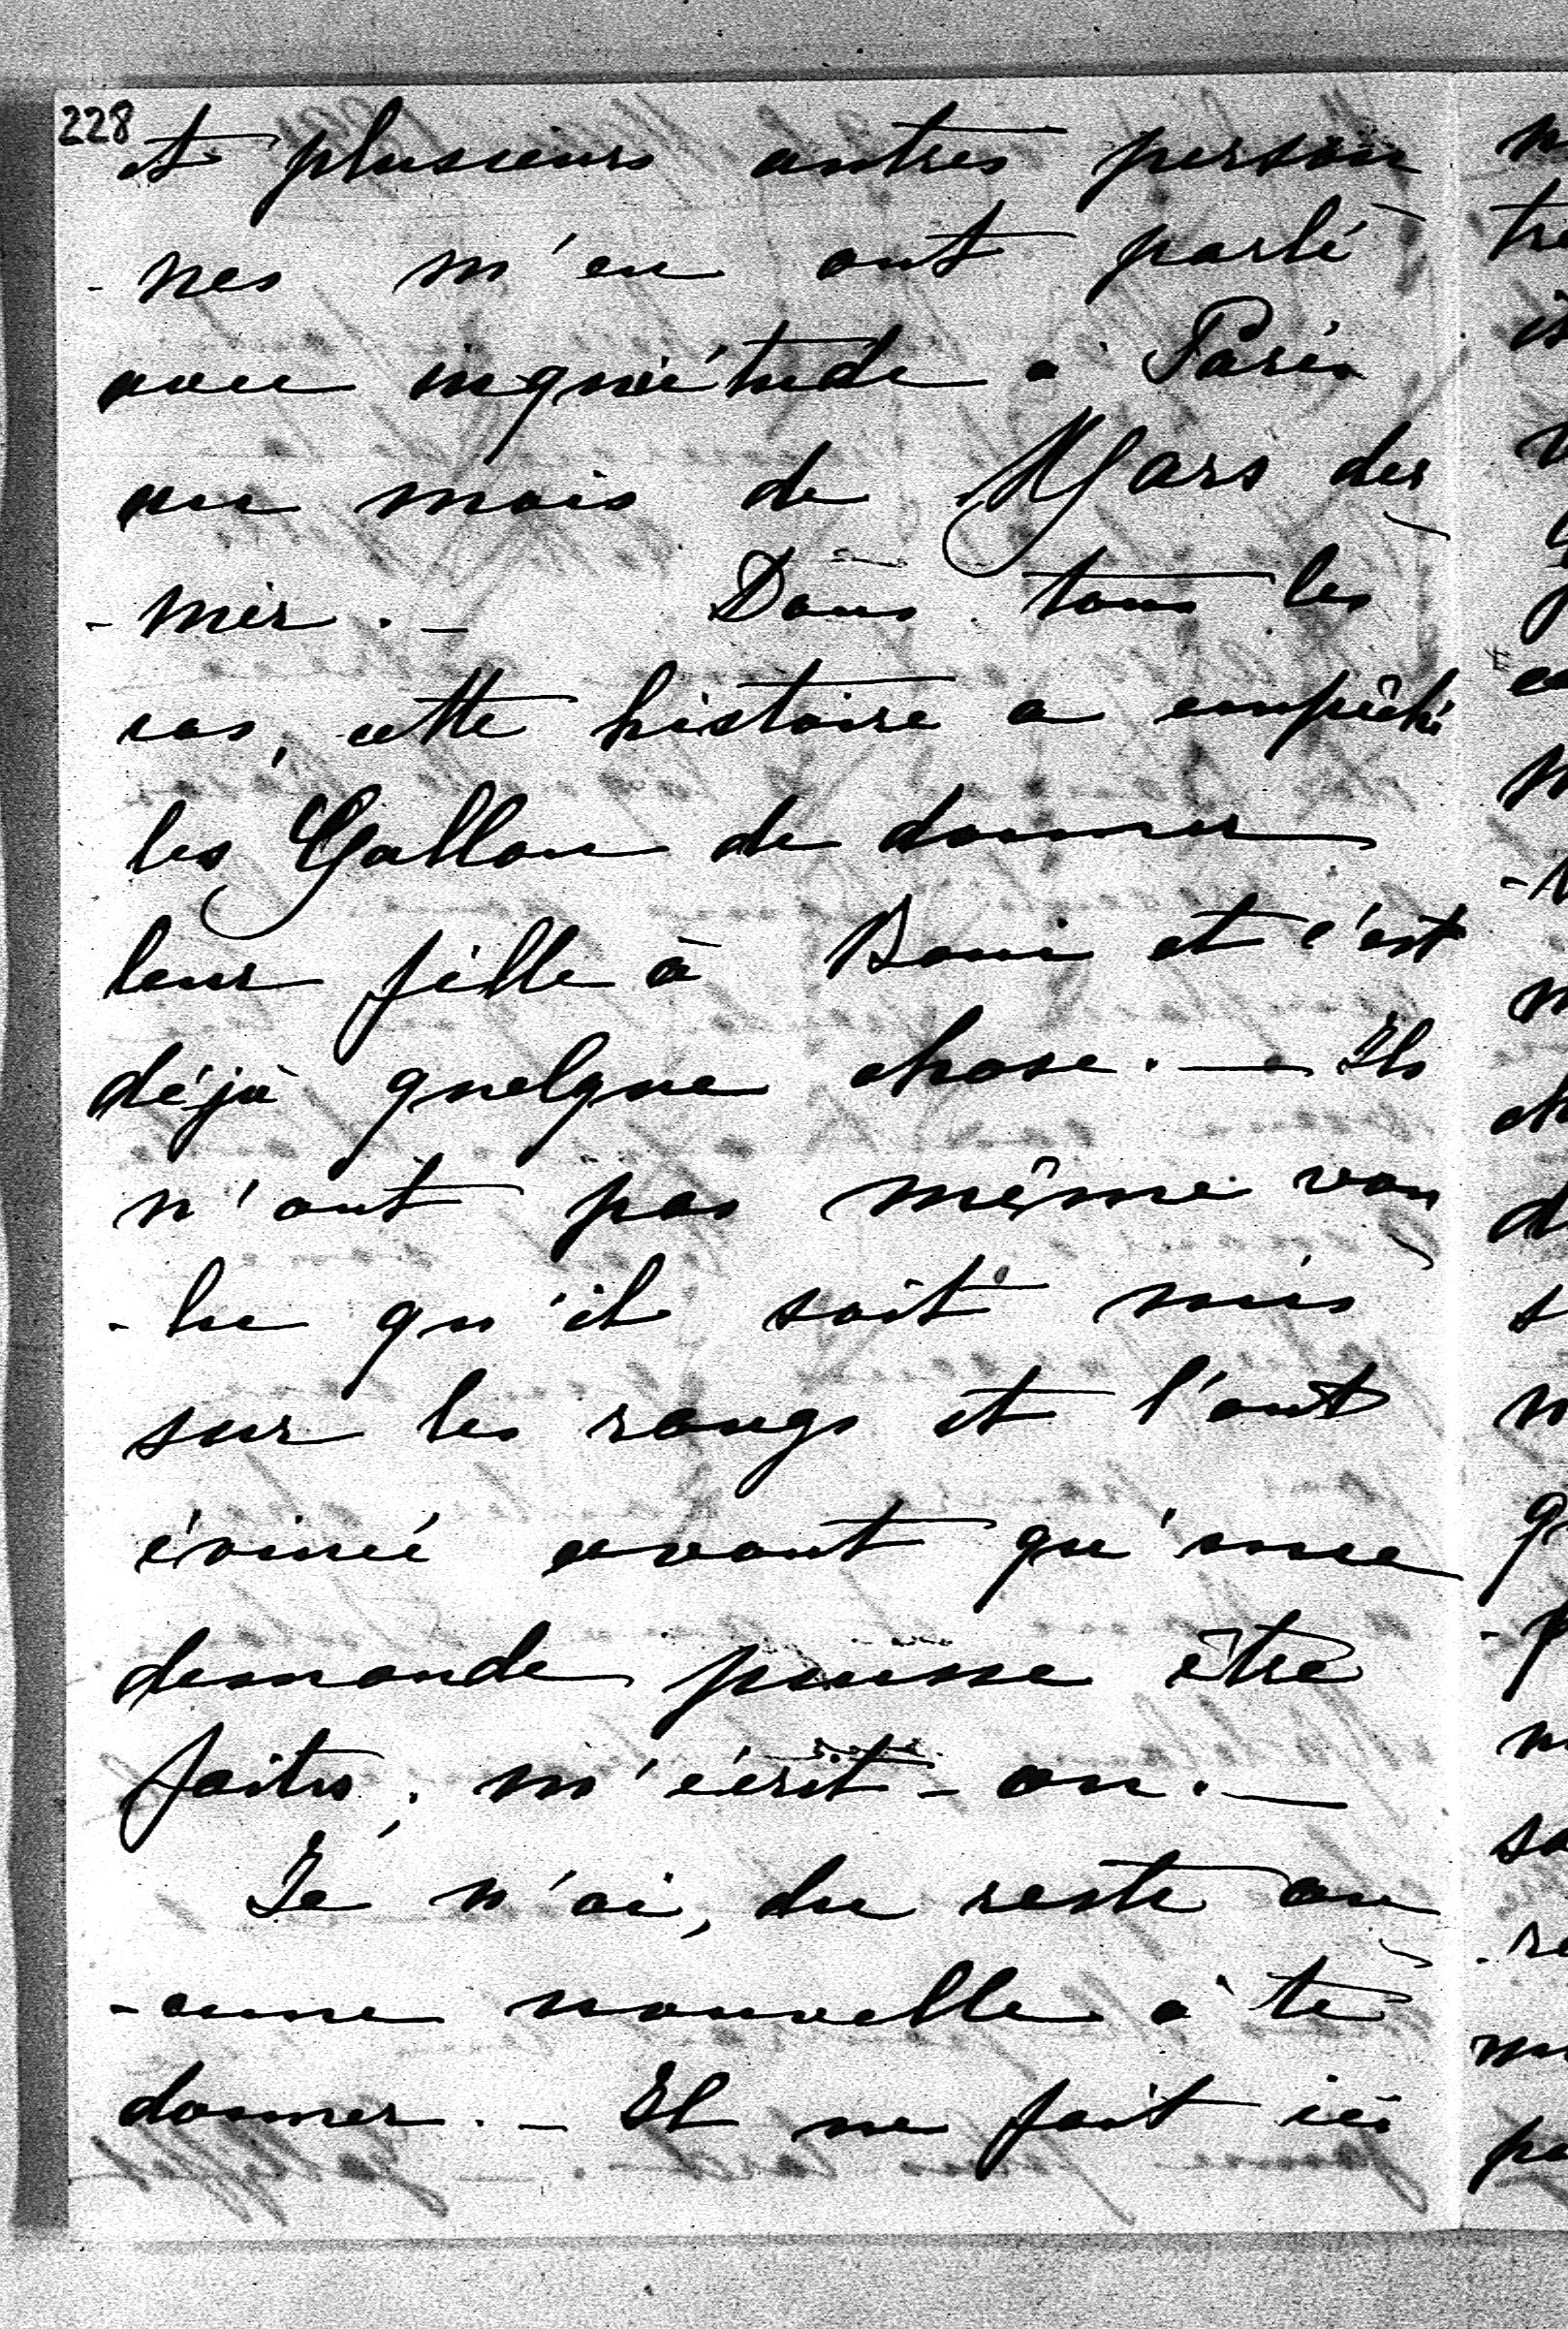 228
et plusieurs autres person
-nes m'en ont parlé
avec inquiétude à Paris
au mois de Mars der
-nier. - Dans tous les
cas, cette histoire a empêché
les Gallon de donner
leur fille à Boni et c'est
déjà quelque chose. - Ils
n'ont pas même vou
-lu qu'il soit mis
sur les rangs et l'ont
évincé avant qu'une
demande puisse être
faite, m'écrit-on. -
Je n'ai, du reste au
-cune nouvelle à te
donner. - Il ne fait ici